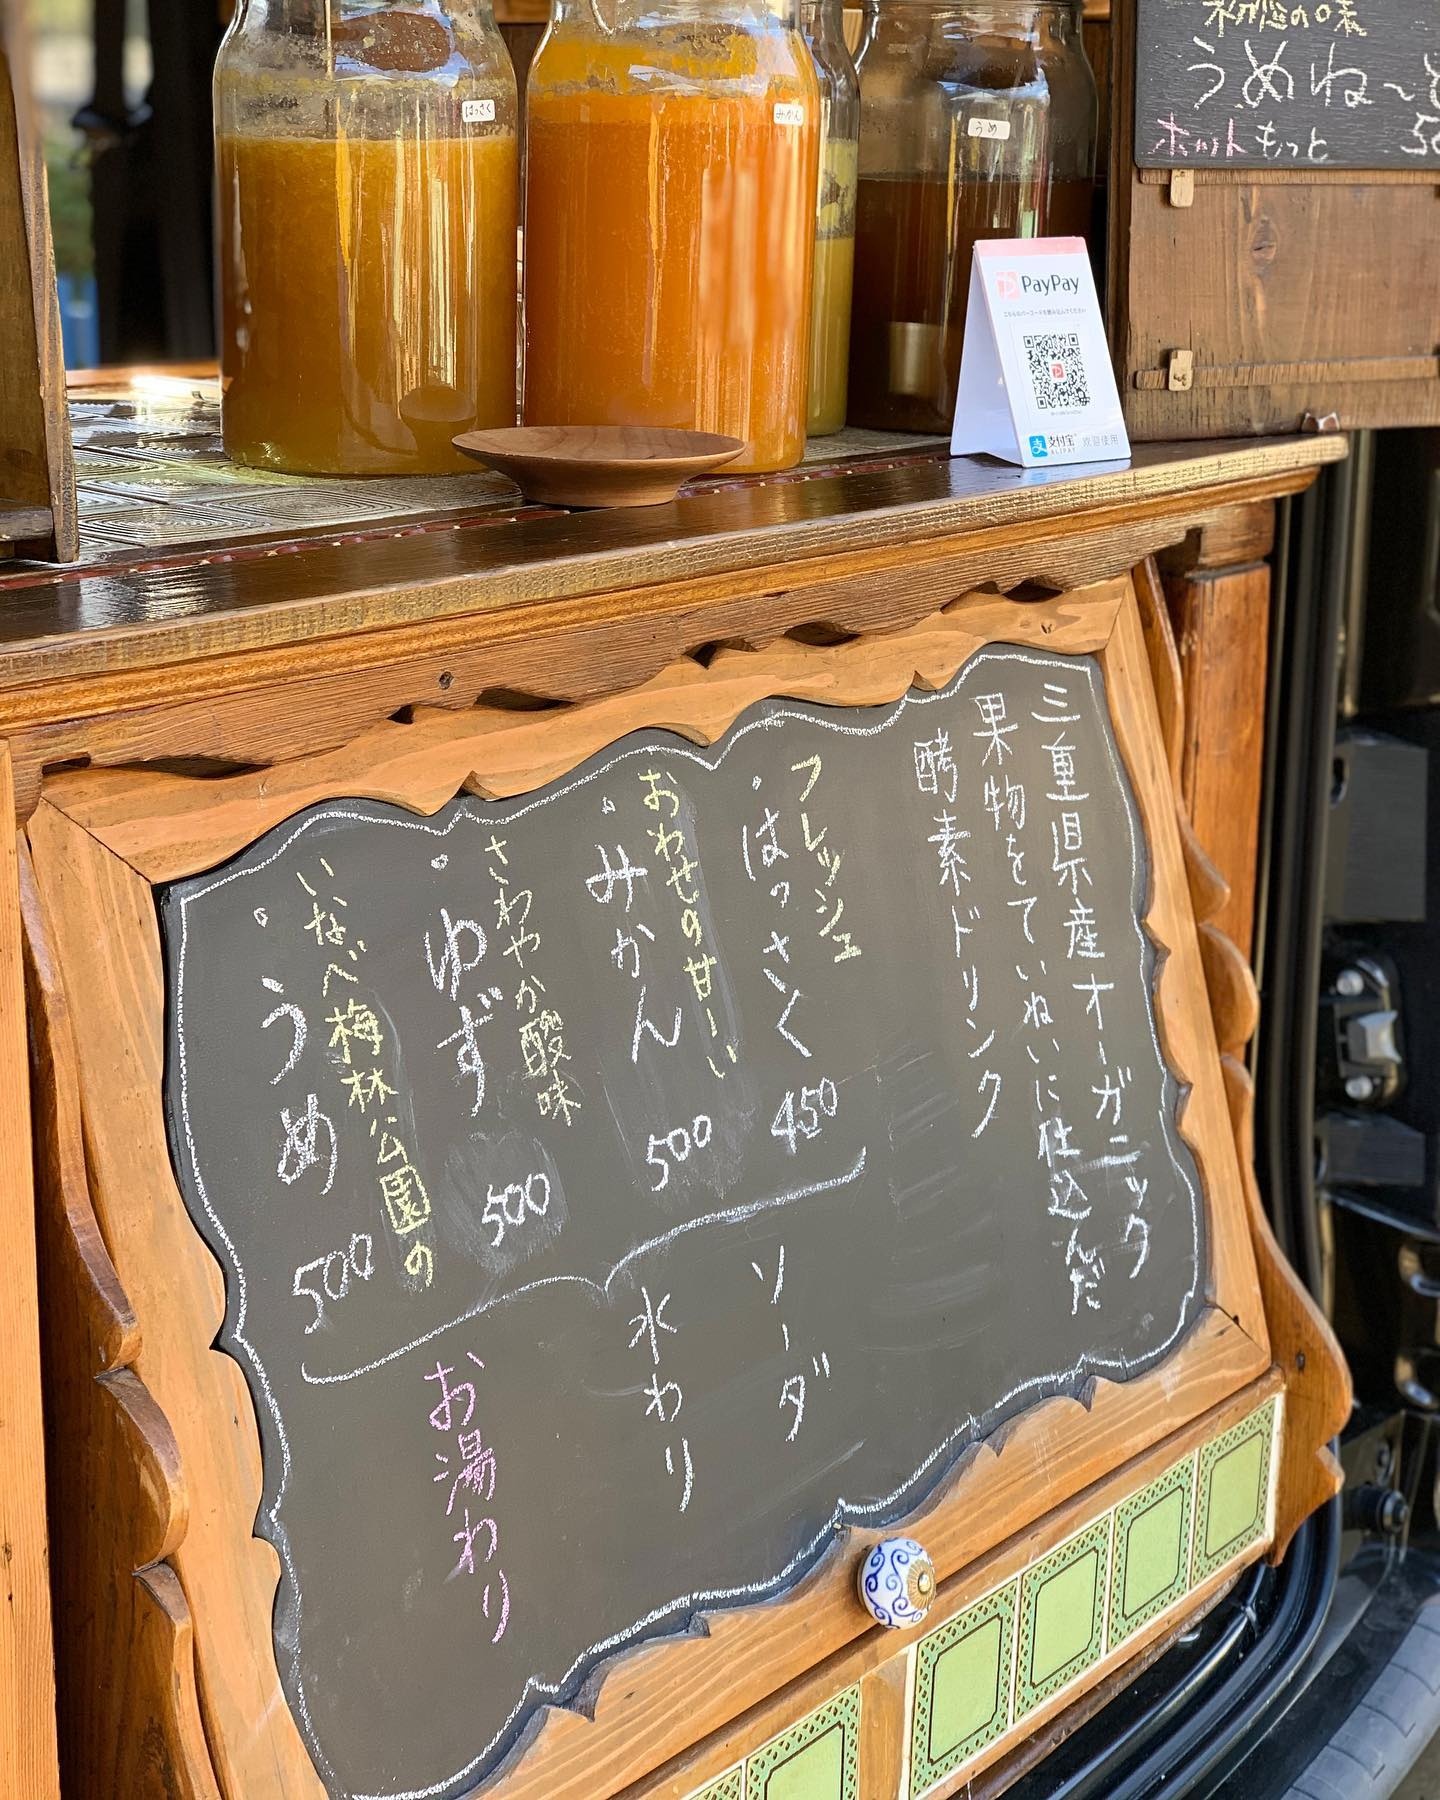 はっさく
みかん
うめ
うめね〜ど
ホット もっと
PayPay
支付宝
ALIPAY
欢迎使用
三重県産オーガニック
果物をていねいに仕込んだ
酵素ドリンク
フレッシュ
・はっさく 450
おわせの甘ーい
・みかん 500
さわやか酸味
・ゆず 500
いなべ梅林公園の
・うめ 500
ソーダ
水わり
お湯わり